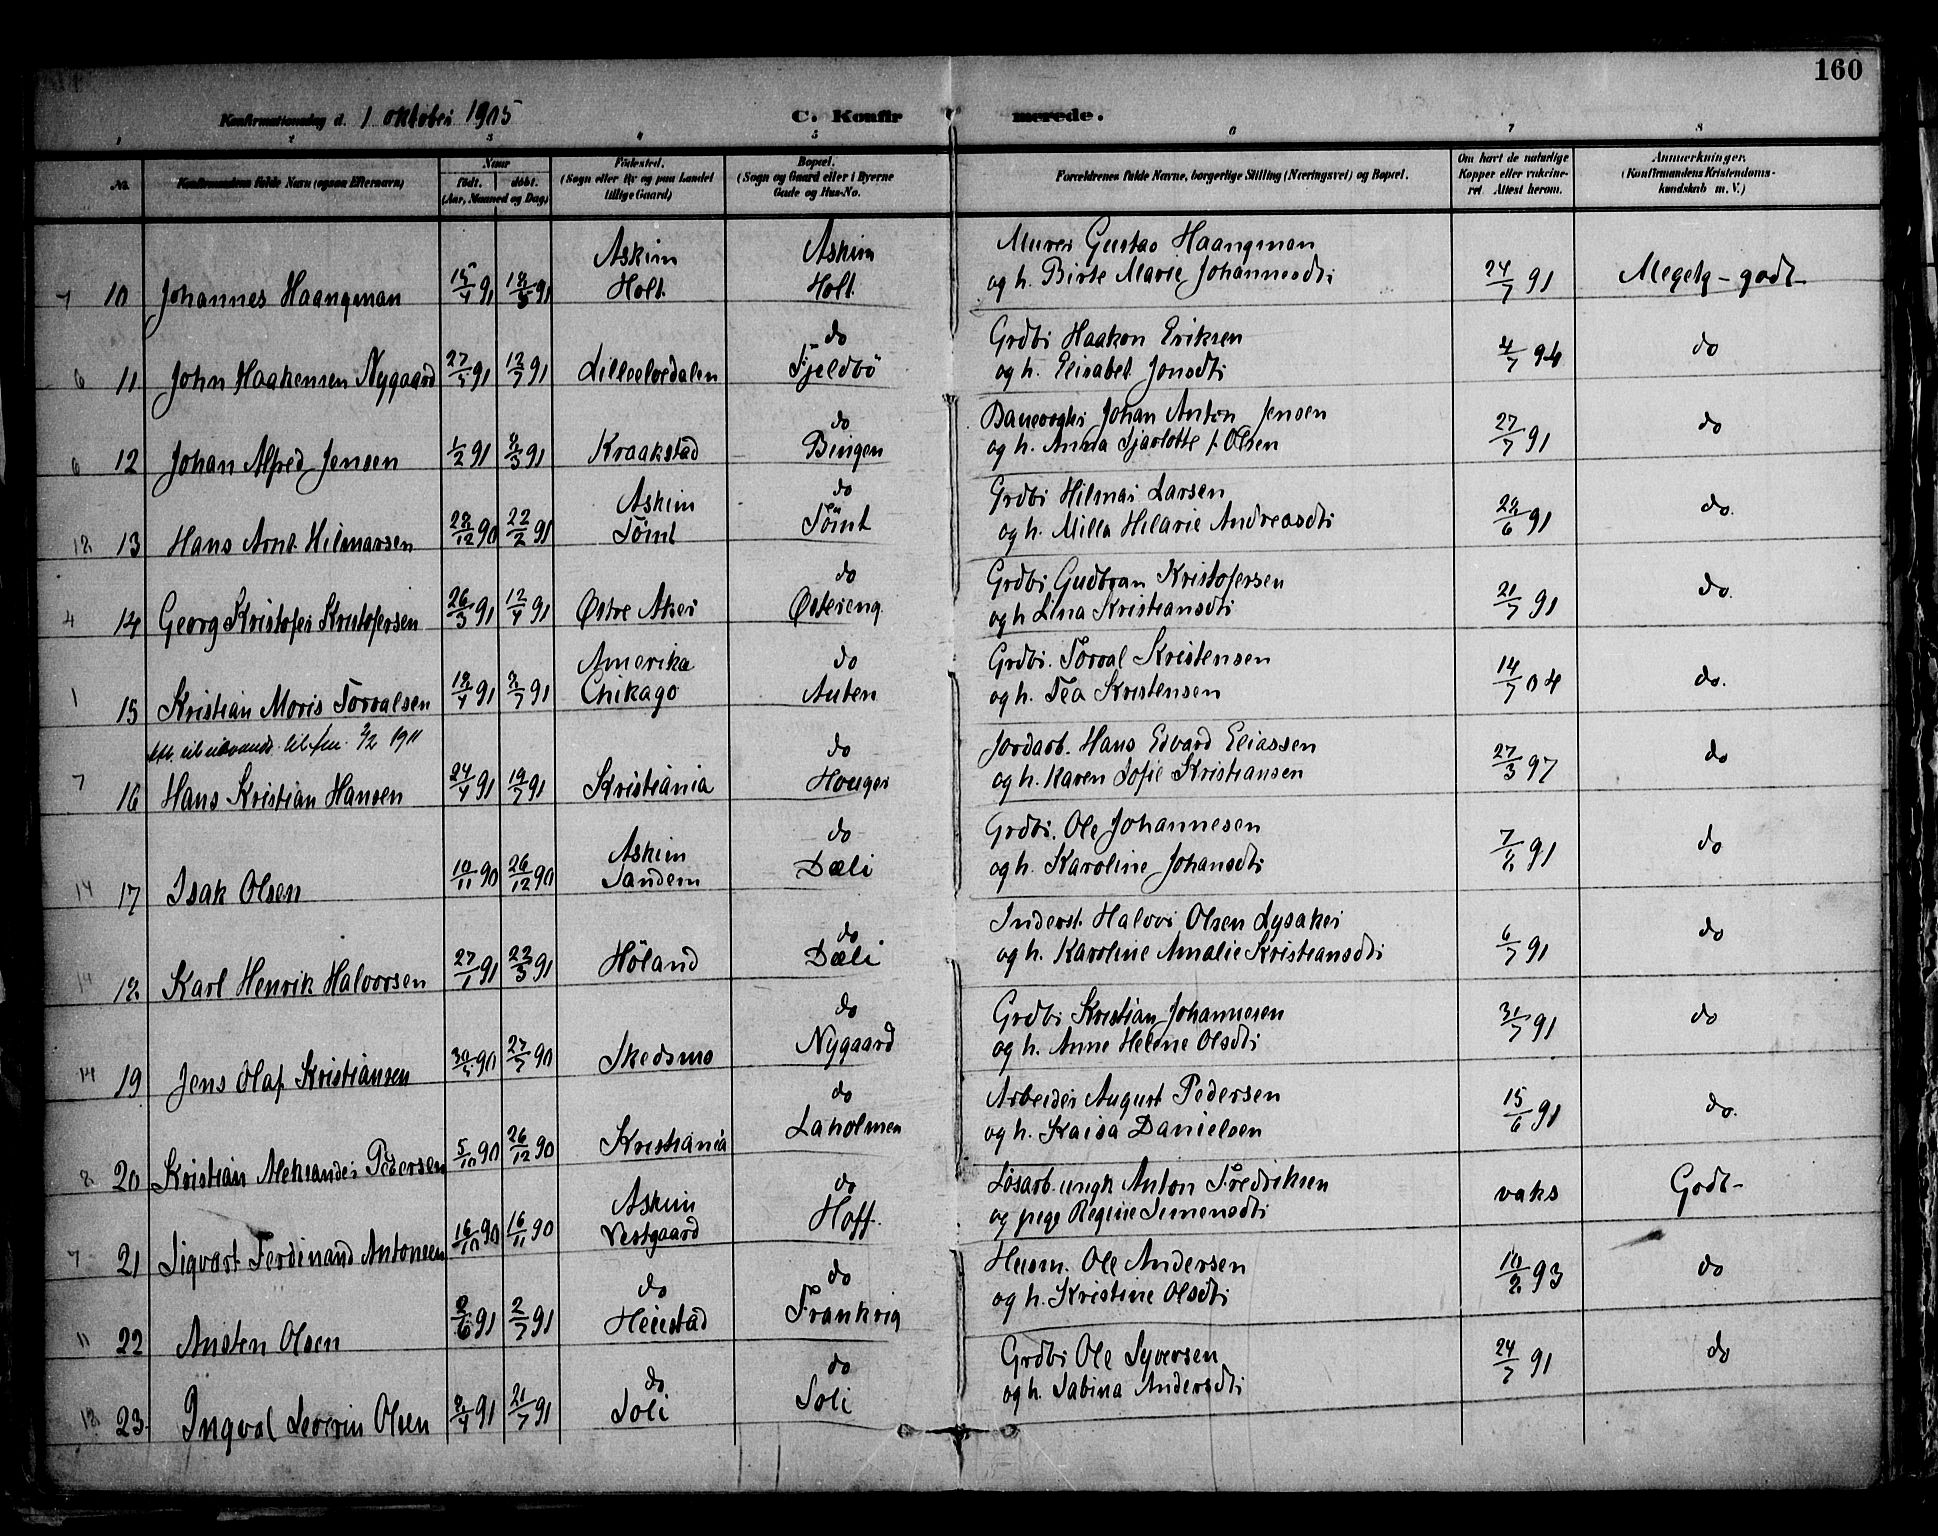 160
Konfirmationsdag d. 1 oktober 1905
C. Konfirmerede.
1 2 3 4 5 6 7 8
No.
Konfirmandens fulde Navn (ogsaa Efternavn)
Naar
født. døbt.
(Aar, Maaned og Dag)
Fødested.
(Sogn eller By og paa Landet
tillige Gaard)
Bopæl.
(Sogn og Gaard eller i Byerne
Gade og Hus-No.
Forældrenes fulde Navne, borgerlige Stilling (Næringsvei) og Bopæl.
Om havt de naturlige
Kopper eller vakcine-
ret. Attest herom.
Anmærkninger.
(Konfirmandens Kristendoms-
kundskab m. V.)
7 10 Johannes Haangman 15/4 91 18/5 91 Askim Holt Askim Holt
Murer Gustav Haangman
og h. Birte Marie Johannesdtr
24/7 91 Megetg - godt -
6 11 John Haakensen Nygaard 27/5 91 12/7 91 Lilleelvedalen do Fjeldbö
Grdbr Haakon Eriksen
og h. Elisabet Jonsdtr
4/7 94 do
6 12 Johan Alfred Jensen 1/2 91 8/3 91 Kraakstad do Bingen
Banevogter Johan Anton Jensen
og h. Anna Sjarlotte f. Olsen
27/7 91 do
18 13 Hans Arnt Hilmarsen 28/12 90 22/2 91 Askim Tömt do Tömt
Grdbr Hilmar Larsen
og h. Milla Hilarie Andreasdtr
28/6 91 do.
4 14 Georg Kristofer Kristofersen 26/3 91 12/4 91 Østre Aker do Østereng
Grdbr Gudbran Kristofersen
og h Lina Kristiansdtr
21/7 91 do.
1 15 Kristian Moris Torvalsen 18/4 91 8/7 91 Amerika Chikago do Auten
Grdbr. Torval Kristensen
og h. Tea Kristensen
14/7 04 do.
1911
7 16 Hans Kristian Hansen 24/4 91 19/7 91 Kristiania do Houger
Jordarb. Hans Edvard Eliassen
og h. Karen Sofie Kristiansen
27/3 97 do
14 17 Isak Olsen 10/11 90 26/12 90 Askim Sandem do Dæli
Grdbr. Ole Johannesen
og h. Karoline Johansdtr
7/8 91 do
14 18 Karl Henrik Halvorsen 27/1 91 22/3 91 Höland do Dæli
Inderst. Halvor Olsen Lysaker
og h. Karoline Amalie Kristiansdtr
6/7 91 do
14 19 Jens Olaf Kristiansen 30/5 90 27/7 90 Skedsmo do Nygaard
Grdbr Kristian Johannesen
og h. Anne Helene Olsdtr
31/7 91 do
8 20 Kristian Aleksander Pedersen 5/10 90 26/12 90 Kristiania do Laholmen
Arbeider August Pedersen
og h. Kaisa Danielsen
15/6 91 do.
7 21 Sigvart Ferdinand Antonsen 16/10 90 16/11 90 Askim Vestgaard do Hoff.
Løsarb. ungk Anton Fredriksen
og pige Regine Simensdtr
vaks Godt -
11 22 Austen Olsen 8/6 91 2/7 91 do Heiestad do Frankrig
Husm. Ole Andersen
og h. Kristine Olsdtr
10/2 93 do
18 23 Ingval Severin Olsen 8/4 91 21/7 91 do Soli do Soli
Grdbr Ole Syversen
og h. Sabina Andersdtr
24/7 91 do